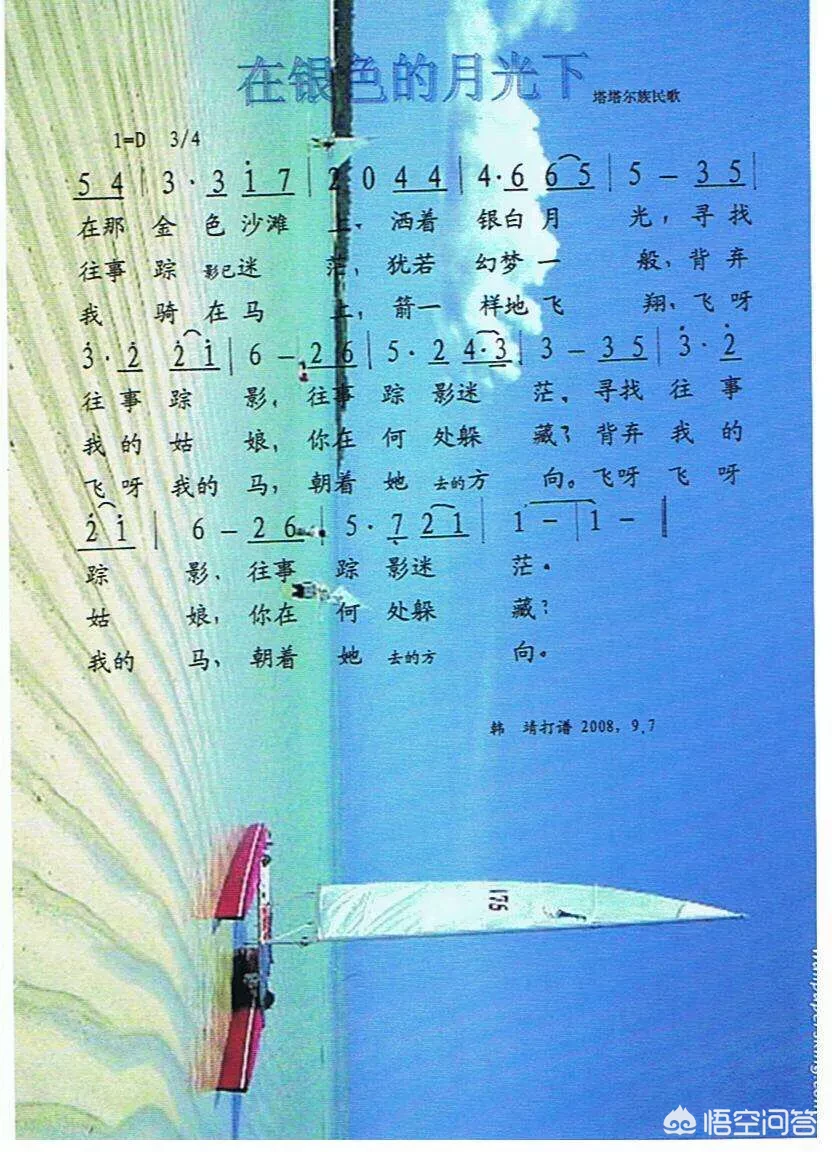 在银色的月光下
塔塔尔族民歌
1=D 3/4
5 4 | 3 · 3 1̇ 7 | 2 0 4 4 | 4 · 6 6 5 | 5 — 3 5 |
在那 金 色 沙滩 上，洒着 银白 月 光，寻找
往事 踪 影已迷 茫，犹若 幻梦 一 般，背弃
我 骑 在 马 上，箭一 样地 飞 翔，飞呀
3̇ · 2̇ 2̇ 1̇ | 6 — 2 6 | 5 · 2 4 · 3 | 3 — 3 5 | 3̇ · 2̇
往 事 踪 影，往事 踪 影迷 茫。寻找 往 事
我 的 姑 娘，你在 何 处躲 藏？背弃 我 的
飞 呀 我的 马，朝着 她 去的方 向。飞呀 飞 呀
2̇ 1̇ | 6 — 2 6 | 5 · 7̣ 2 1 | 1 — | 1 — ‖
踪 影，往事 踪 影迷 茫。
姑 娘，你在 何 处躲 藏？
我的 马，朝着 她 去的方 向。
韩 靖打谱 2008，9.7
175
悟空问答